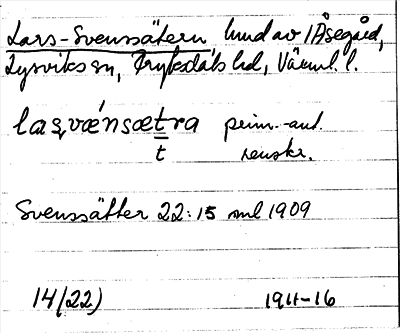 Lars-Svenssätern hmd av 1 Åsegård,
Lysviks sn, Fryksdals hd, Värml. l.
laʂvænsætra prim.-ant.
t renskr.
Svenssätter 22:15 ml 1909
14(22) 1911-16